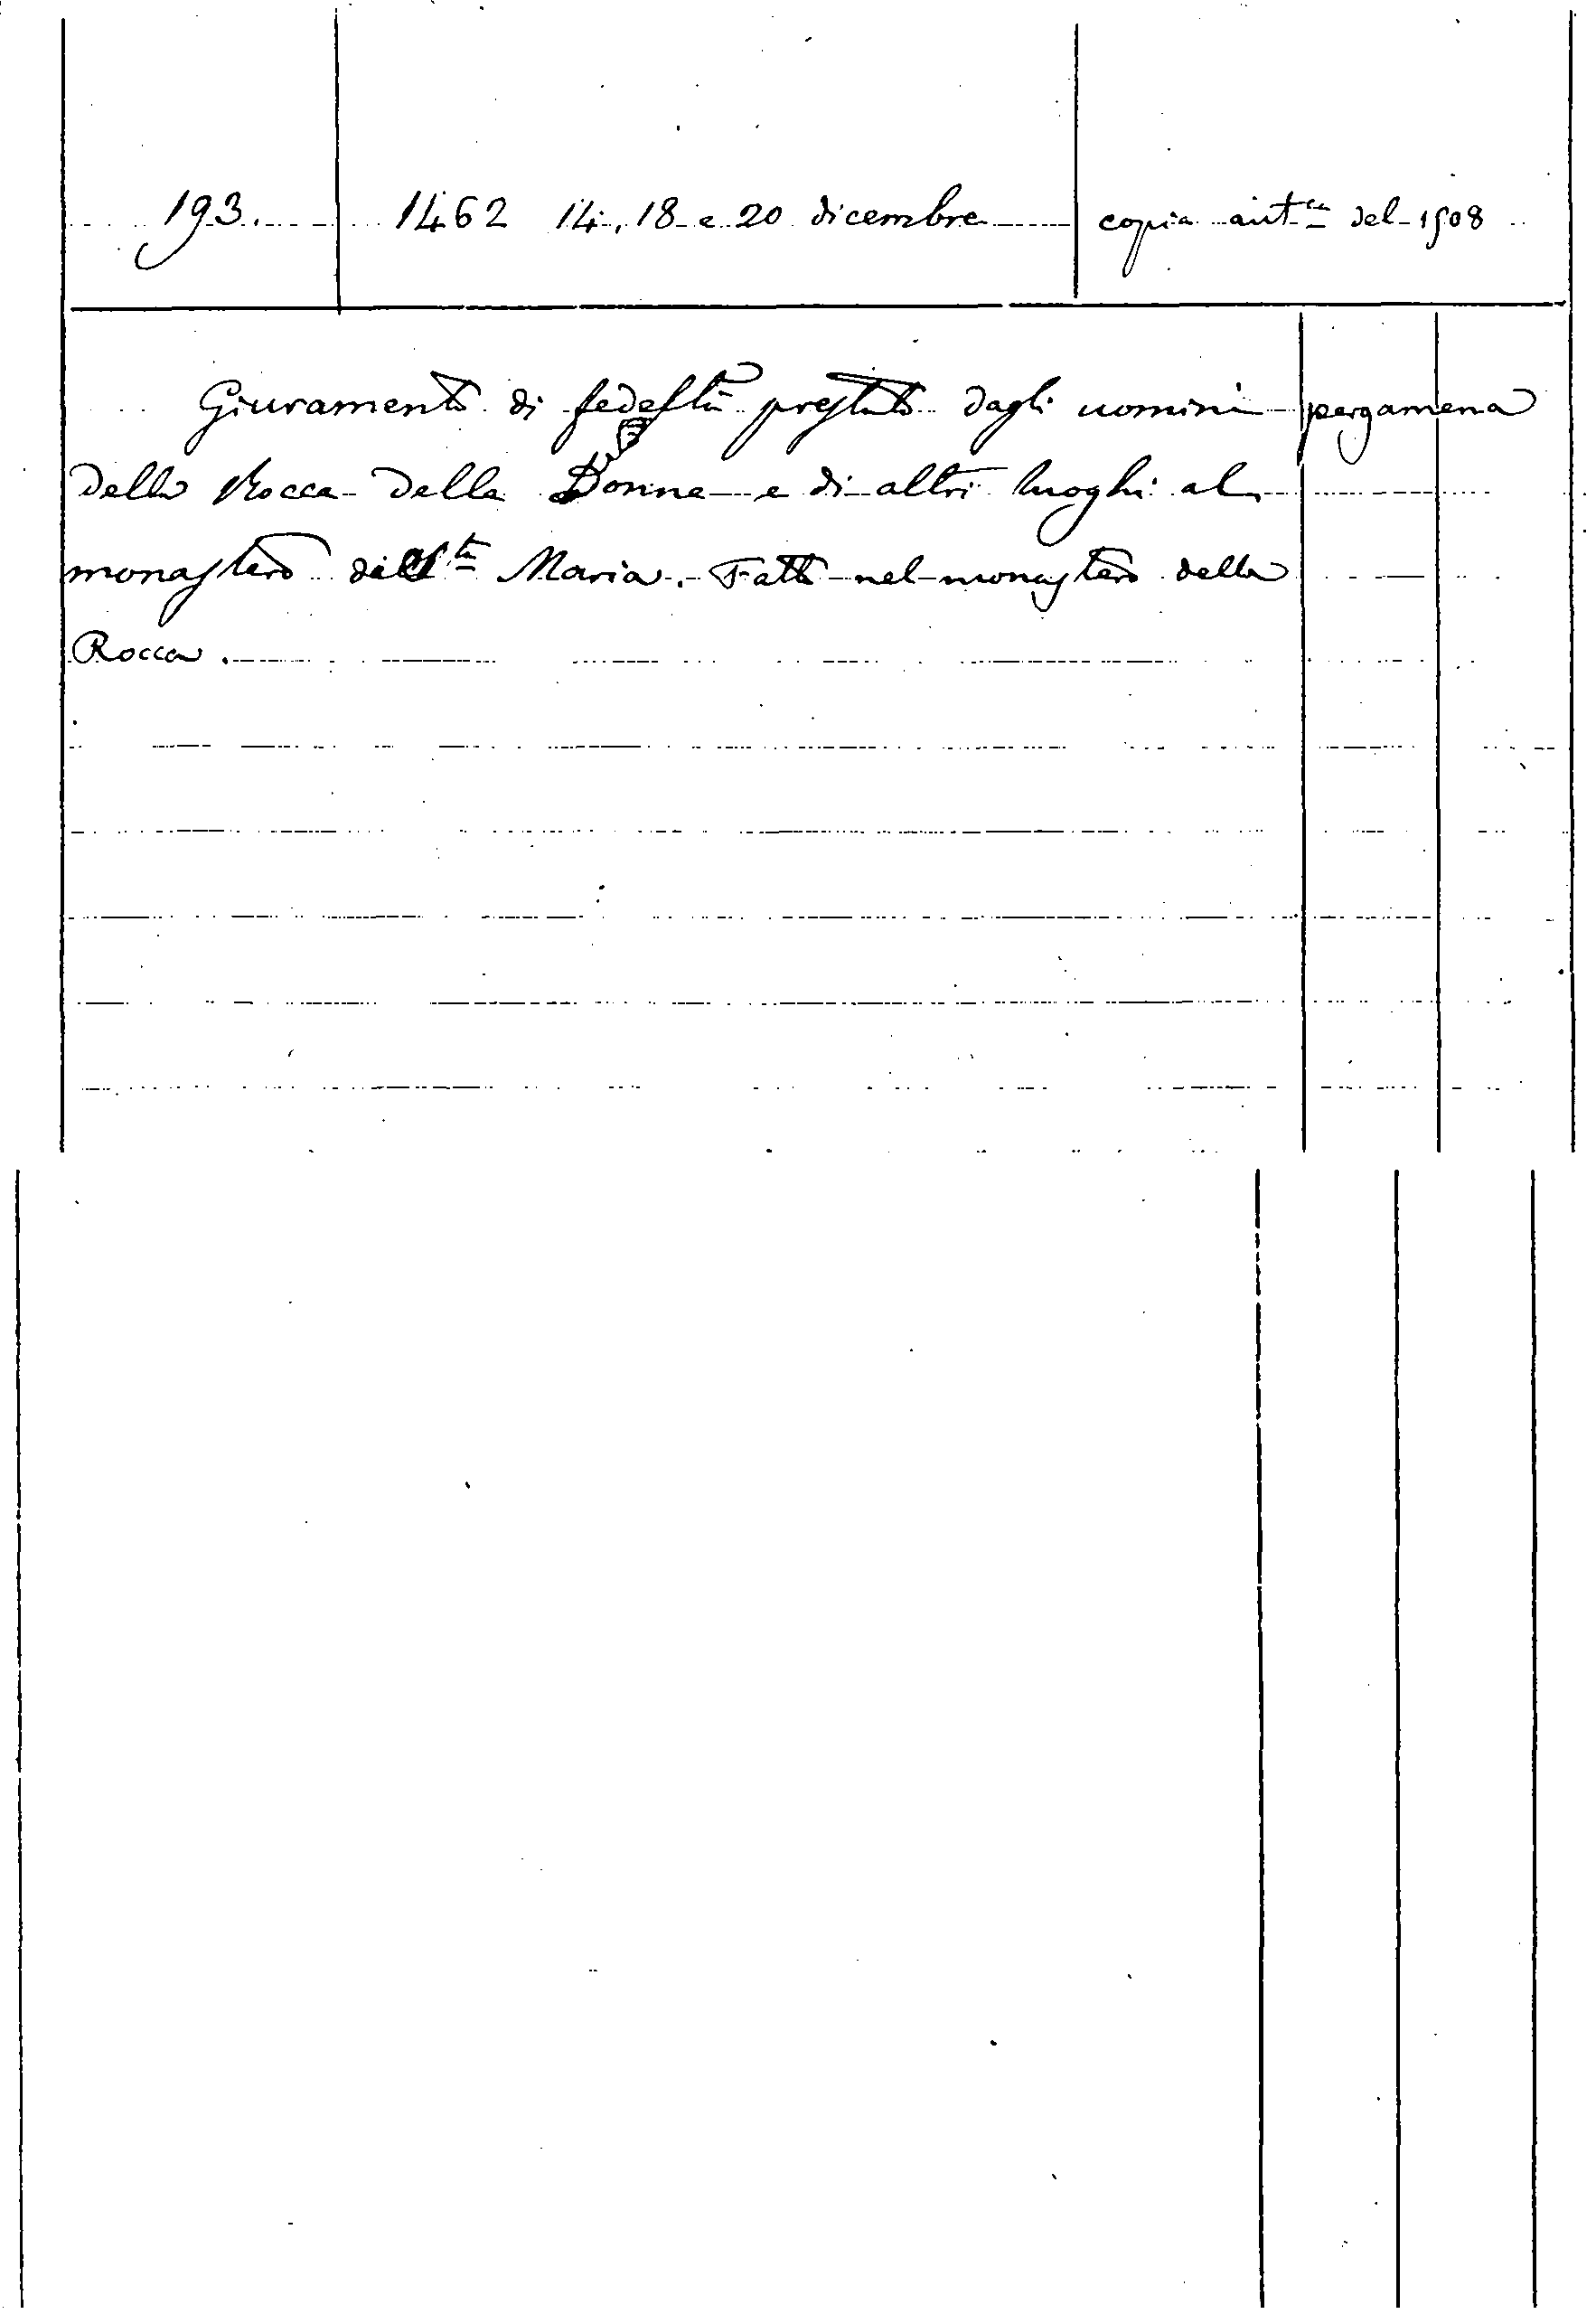 193. 1462 14, 18 e 20 dicembre copia autca del 1508
Giuramento di fedeltà prestato dagli uomini pergamena
della Rocca delle Donne e di altri luoghi al
monastero di Sta Maria. Fatto nel monastero della
Rocca.